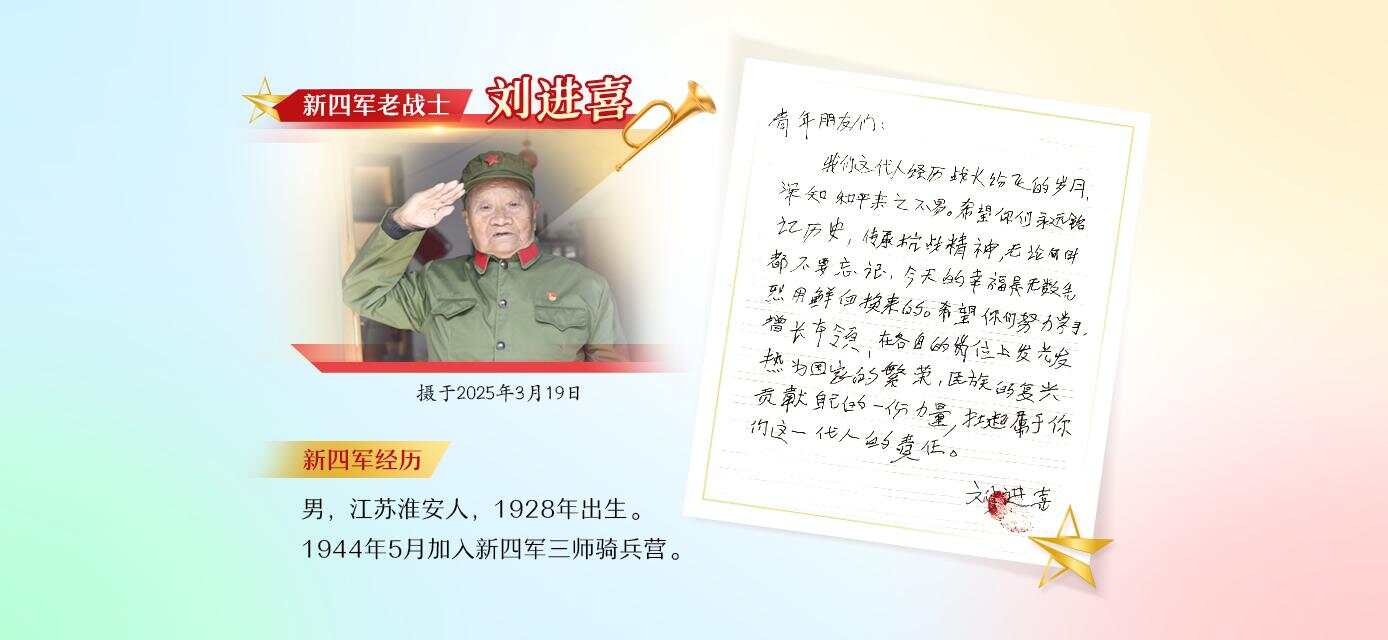 新四军老战士 刘进喜
摄于2025年3月19日
新四军经历
男，江苏淮安人，1928年出生。
1944年5月加入新四军三师骑兵营。
青年朋友们：
我们这代人经历战火纷飞的岁月，
深知和平来之不易。希望你们永远铭
记历史，传承抗战精神，无论何时
都不要忘记，今天的幸福是无数先
烈用鲜血换来的。希望你们努力学习，
增长本领，在各自的岗位上发光发
热为国家的繁荣，民族的复兴
贡献自己的一份力量，扛起属于你
们这一代人的责任。
刘进喜